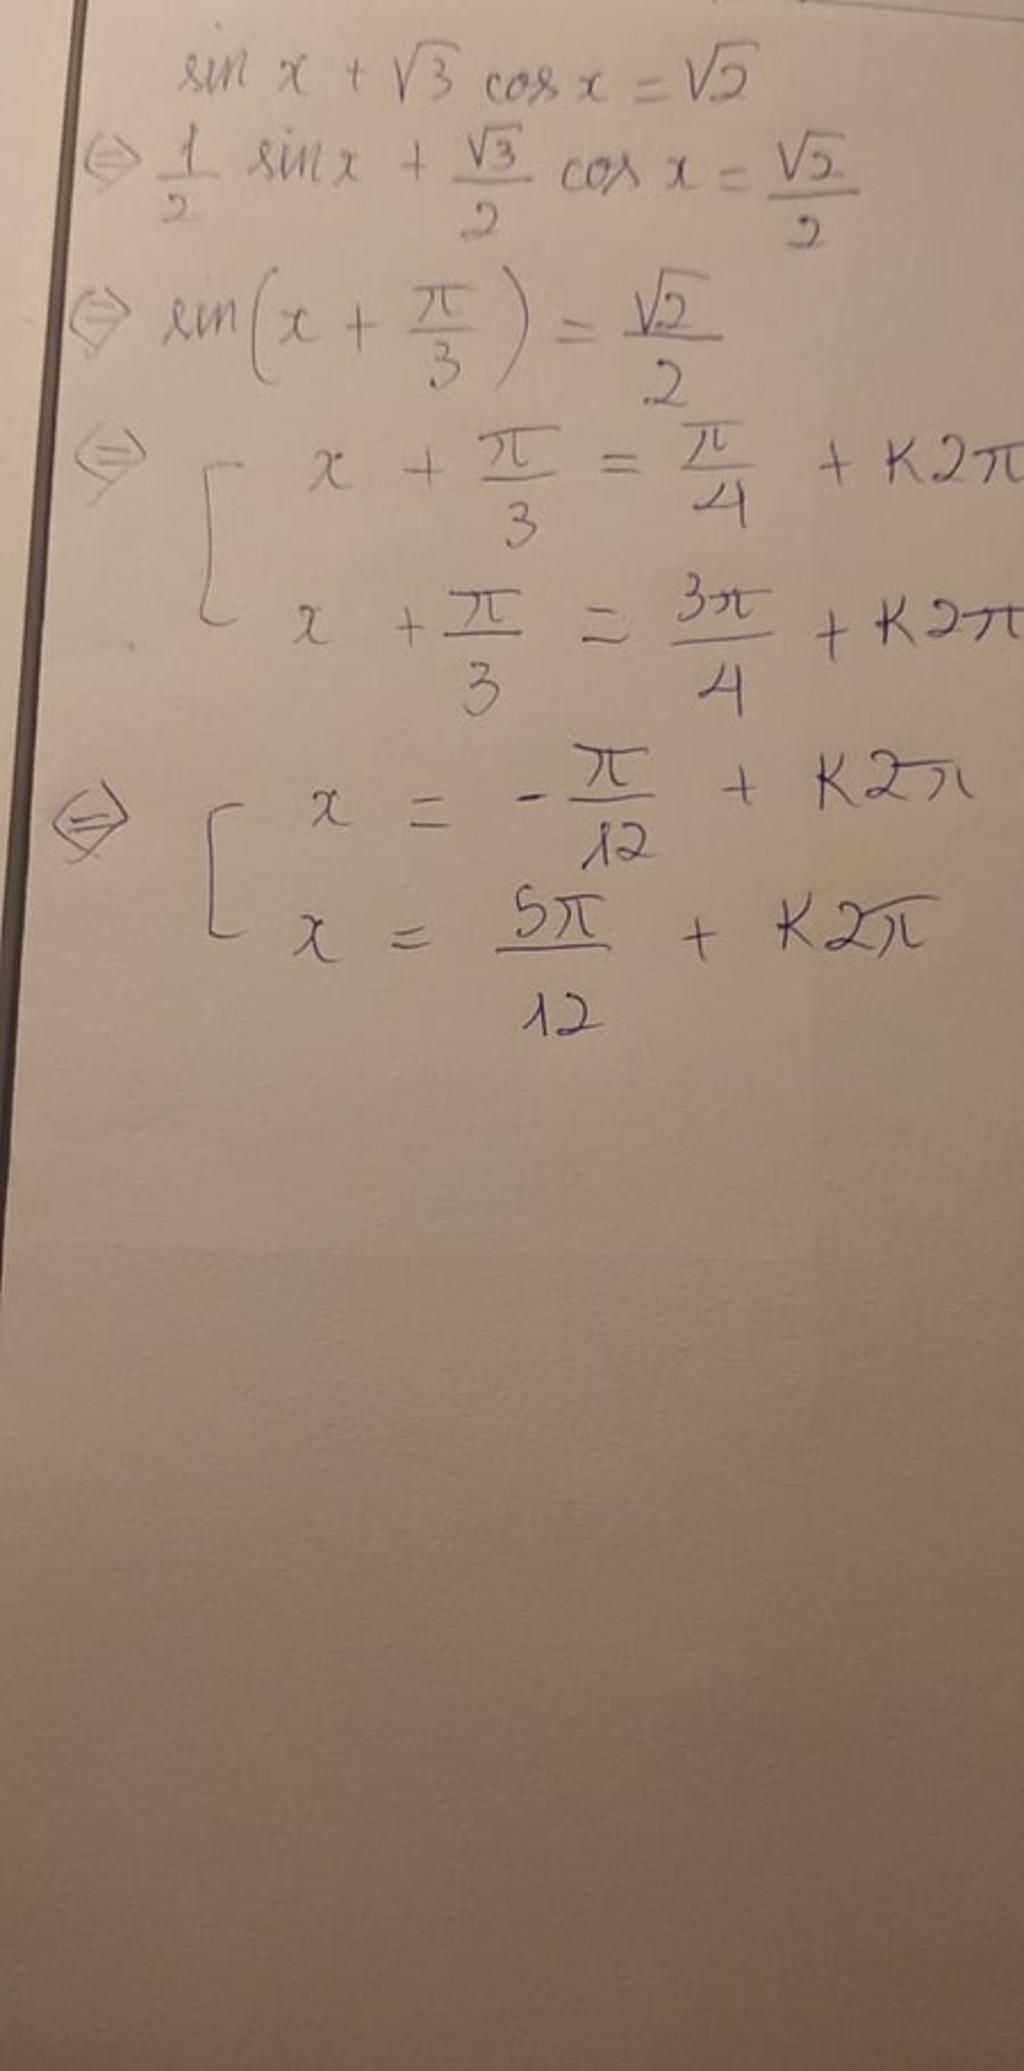 sin x + √3 cos x = √2
⇔ 1/2 sin x + √3/2 cos x = √2/2
⇔ sin(x + π/3) = √2/2
⇔ [ x + π/3 = π/4 + K2π
x + π/3 = 3π/4 + K2π
⇔ [ x = -π/12 + K2π
x = 5π/12 + K2π